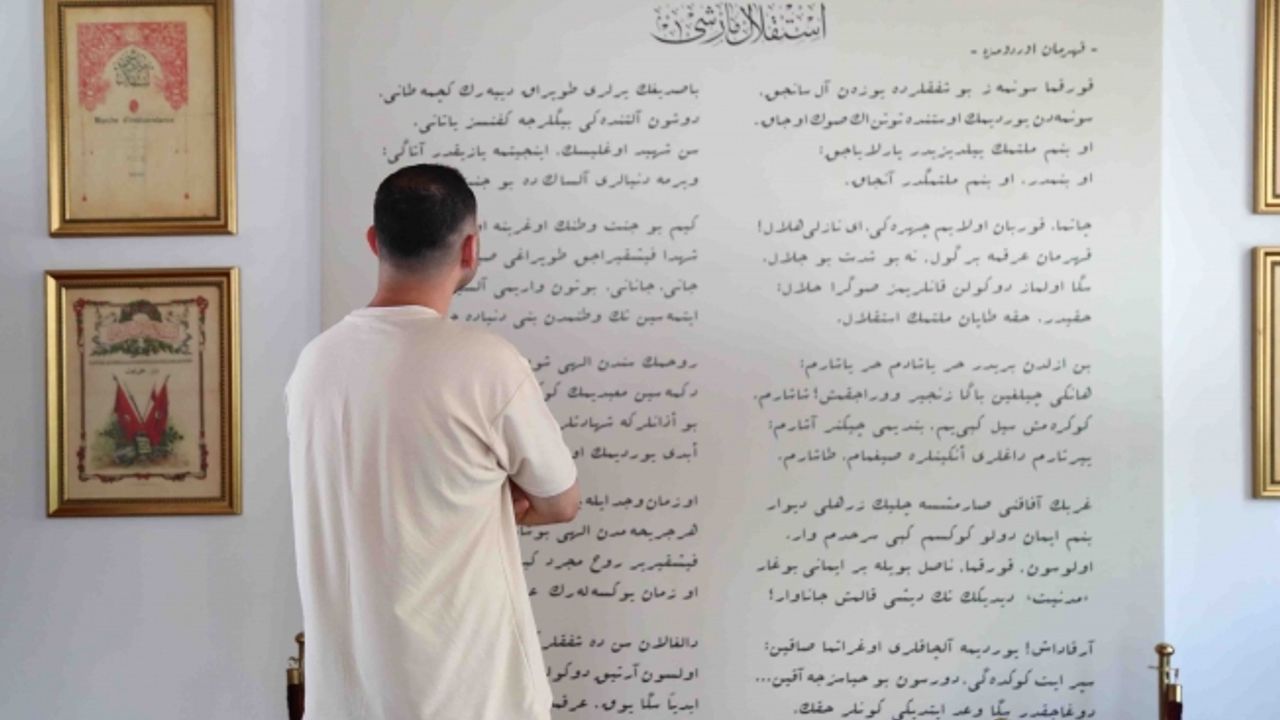 استقلال مارشی
- قهرمان اوردومزه -
قورقما سونمه ز بو شفقلرده یوزەن آل سانجق،
سونمه‌دن یوردیمك اوستنده توتن اك صوك اوجاق.
او بنم ملتمك ییلدیزیدر پارلایاجق؛
او بنمدر، او بنم ملتمگدر آنجاق.
چاتما، قوربان اولایم چهره‌كی، ای نازلی هلال!
قهرمان عرقمه بر گول، نه بو شدت بو جلال،
سڭا اولماز دوكولن قانلریمز صوڭرا حلال؛
حقیدر، حقه طاپان ملتمك استقلال.
بن ازلدن بریدر حر یاشادم حر یاشارم؛
هانكی چیلغین باڭا زنجیر ووراجقمش! شاشارم.
كوكره‌مش سیل كبی‌یم، بندیمی چیكنر آشارم؛
ییرتارم داغلری أنكینلره صیغمام، طاشارم.
غربك آفاقنی صارمشسه چلیك زرهلی دیوار
بنم ایمان دولو كوكسم كبی سرحدم وار.
اولوسون، قورقما، ناصل بویله بر ایمانی بوغار
«مدنیت» دیدیكك تك دیشی قالمش جاناوار!
آرقاداش! یوردیمه آلچاقلری اوغراتما صاقین؛
سپر ایت كوكده‌كی، دورسون بو حیاسزجه آقین...
دوغاجقدر سڭا وعد ایتدیكی كونلر حقك.
باصدیغك یرلری طوپراق دییه‌رك كچمه طانی،
دوشون آلتنده‌كی بیڭلرجه كفنسز یاتانی.
سن شهید اوغلیسك، اینجیتمه یازیقدر آتاڭی؛
ویرمه دنیالری آلساڭ ده بو
كیم بو جنت وطنك اوغرینه
شهدا فیشقیراجق طوپراغی
جانی، جانانی، بوتون واریمی
ایتمه‌سین تك وطنمدن بنی دنیاده
روحمك سندن الهی
دكمه‌سین معبدیمك
بو أذانلركه
أبدی یوردیمك
او زمان وجد ایله
هر جریحه‌مدن الهی
فیشقیریر روح مجرد
او زمان یوكسله‌رك
دالغالان سن ده
اولسون آرتیق
ابدیاً سڭا یوق،
Marche d'Indépendance